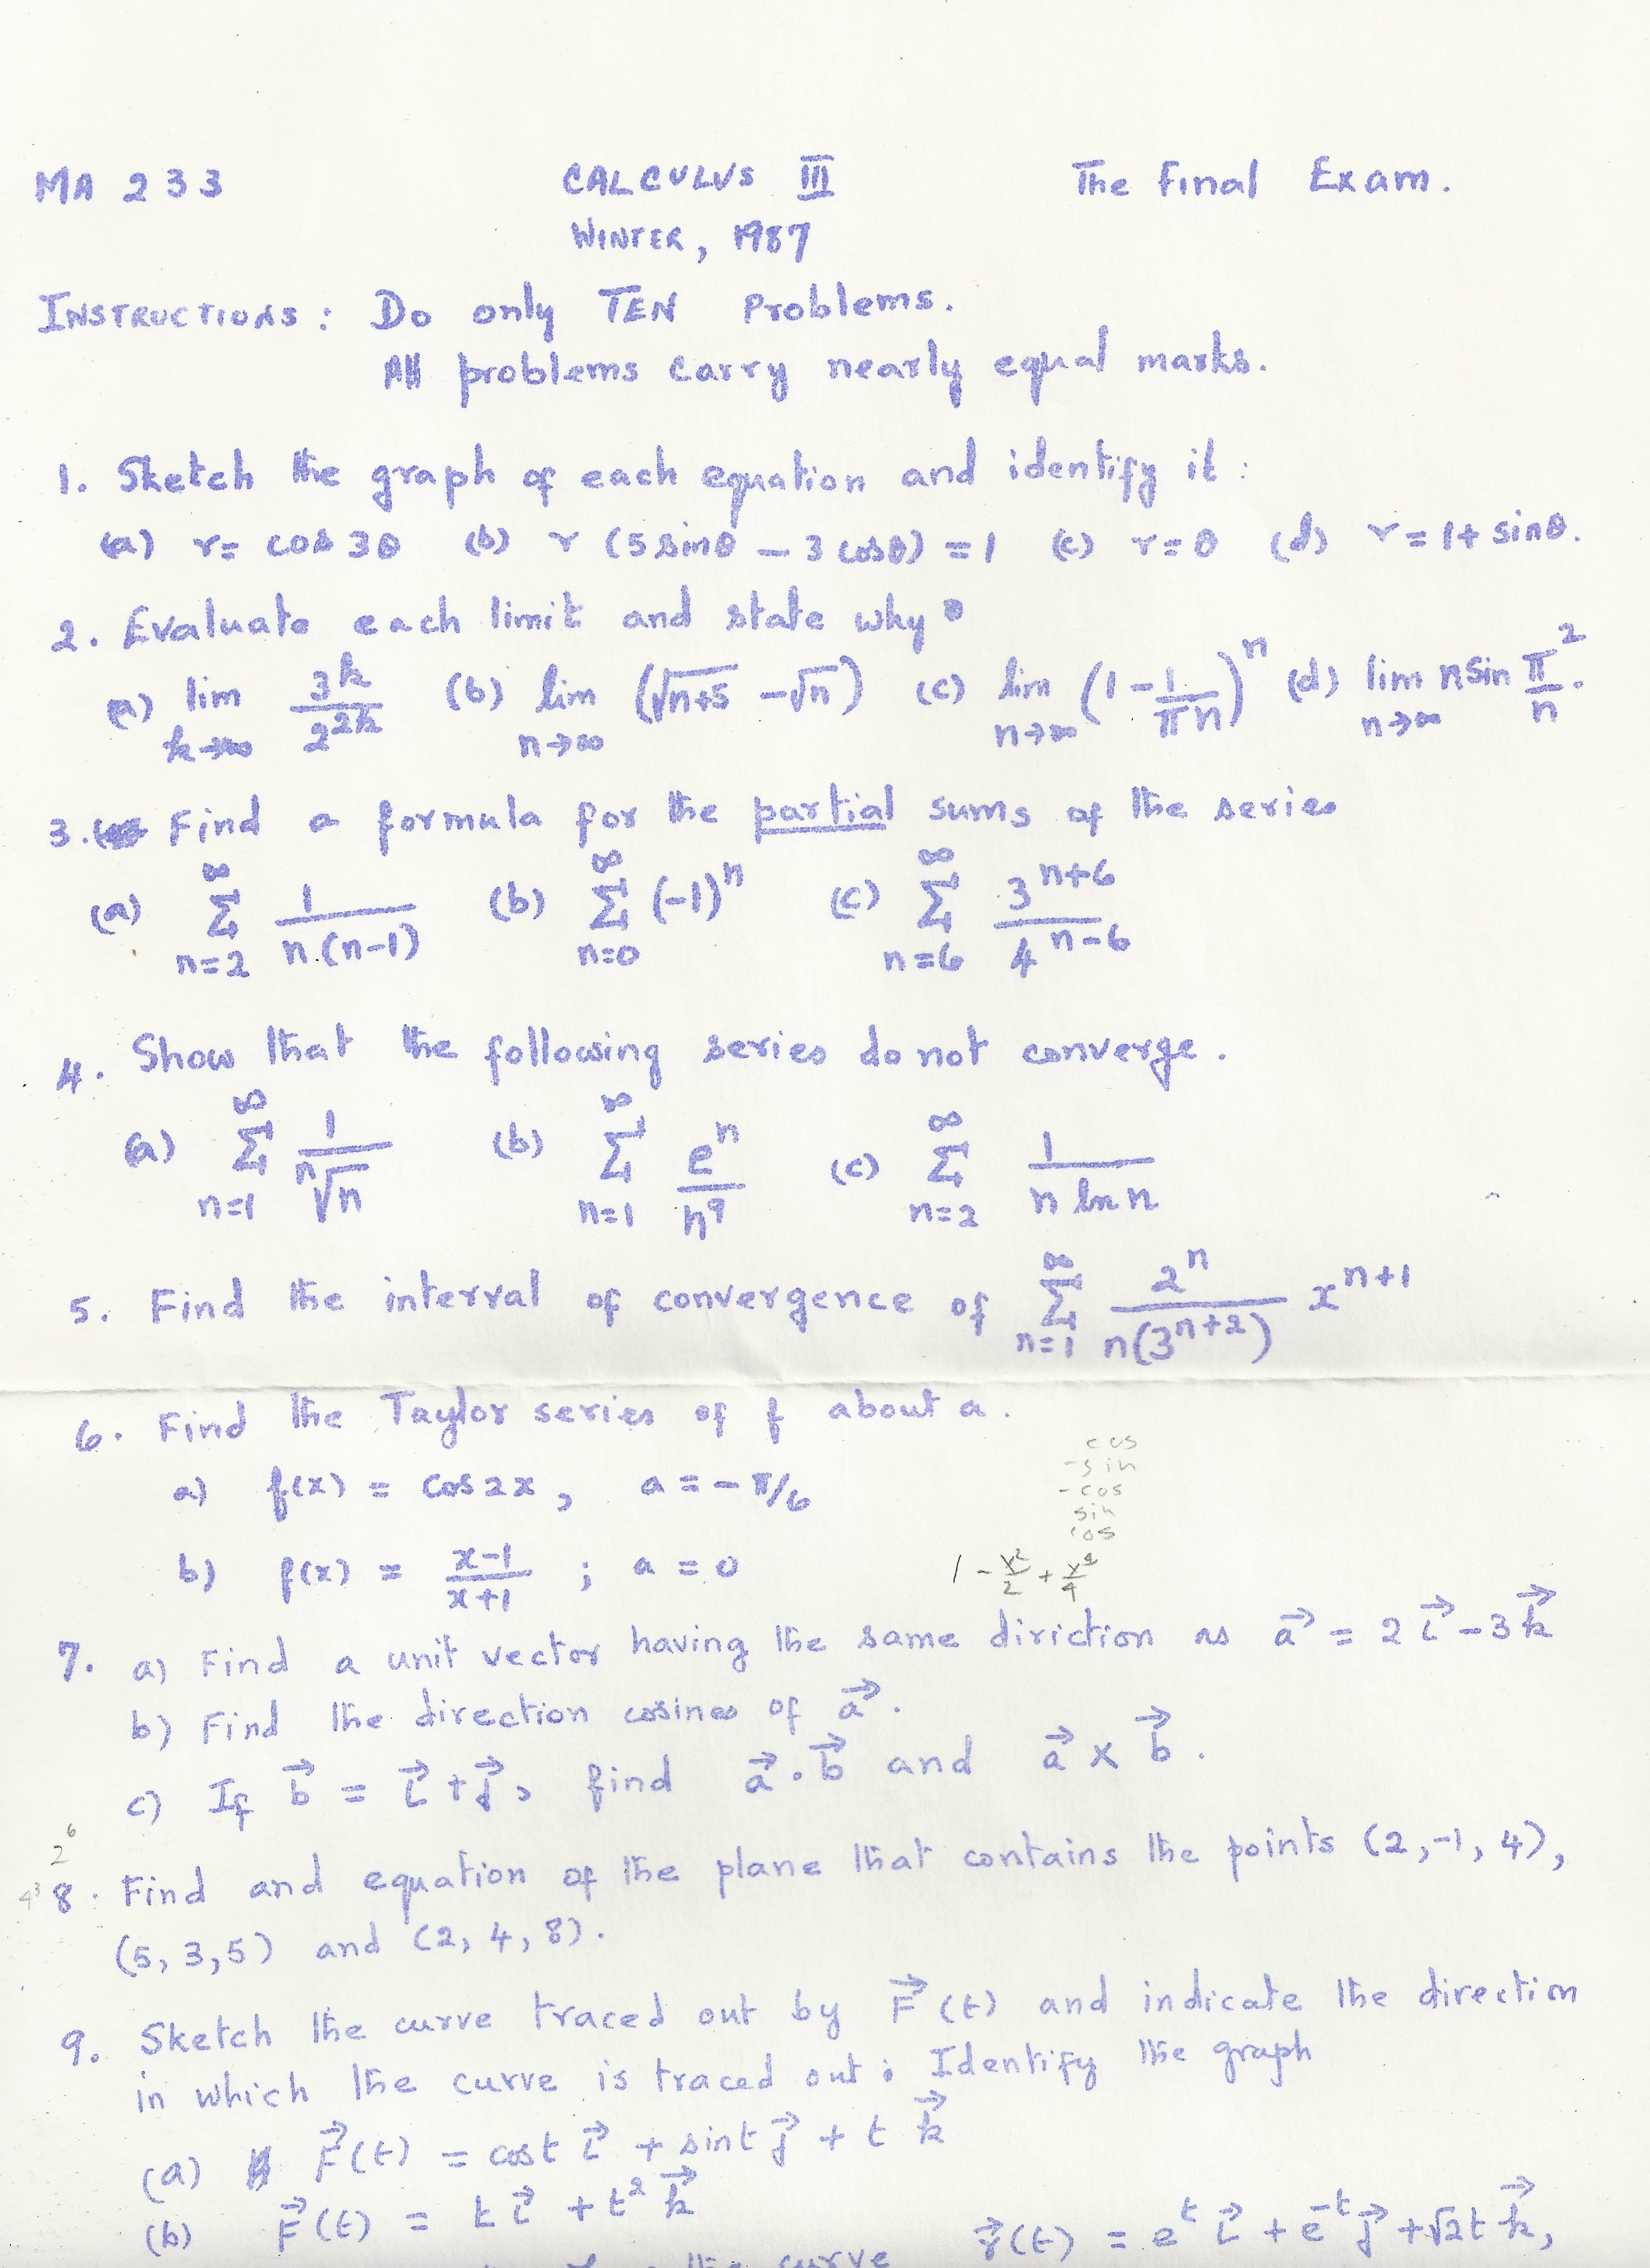 MA 233 CALCULUS III The Final Exam.
WINTER, 1987
INSTRUCTIONS: Do only TEN Problems.
All problems carry nearly equal marks.
1. Sketch the graph of each equation and identify it:
(a) r= cos 3θ (b) r (5 sinθ – 3 cosθ) = 1 (c) r=θ (d) r = 1+ sinθ.
2. Evaluate each limit and state why
(a) lim_{k→∞} 3^k / 2^{2k} (b) lim_{n→∞} (√(n+5) - √n) (c) lim_{n→∞} (1 - 1/(πn))^n (d) lim_{n→∞} n sin π²/n.
3. Find a formula for the partial sums of the series
(a) ∑_{n=2}^{∞} 1/(n(n-1)) (b) ∑_{n=0}^{∞} (-1)^n (c) ∑_{n=6}^{∞} 3^{n+6} / 4^{n-6}
4. Show that the following series do not converge.
(a) ∑_{n=1}^{∞} 1/ⁿ√n (b) ∑_{n=1}^{∞} e^n / n^9 (c) ∑_{n=2}^{∞} 1/(n ln n)
5. Find the interval of convergence of ∑_{n=1}^{∞} 2^n / (n(3^{n+2})) x^{n+1}
6. Find the Taylor series of f about a.
cos
-sin
-cos
sin
cos
a) f(x) = cos 2x, a = - π/6
b) f(x) = (x-1)/(x+1) ; a = 0
1 - x²/2 + x⁴/4
7. a) Find a unit vector having the same diriction as a⃗ = 2 i⃗ - 3 k⃗
b) Find the direction cosines of a⃗.
c) If b⃗ = i⃗ + j⃗, find a⃗ · b⃗ and a⃗ x b⃗.
2^6
4^3
8. Find and equation of the plane that contains the points (2,-1, 4),
(5, 3,5) and (2, 4, 8).
9. Sketch the curve traced out by F⃗(t) and indicate the direction
in which the curve is traced out. Identify the graph
(a) F⃗(t) = cost i⃗ + sint j⃗ + t k⃗
(b) F⃗(t) = t i⃗ + t² k⃗
r⃗(t) = e^t i⃗ + e^{-t} j⃗ + √2 t k⃗,
the curve